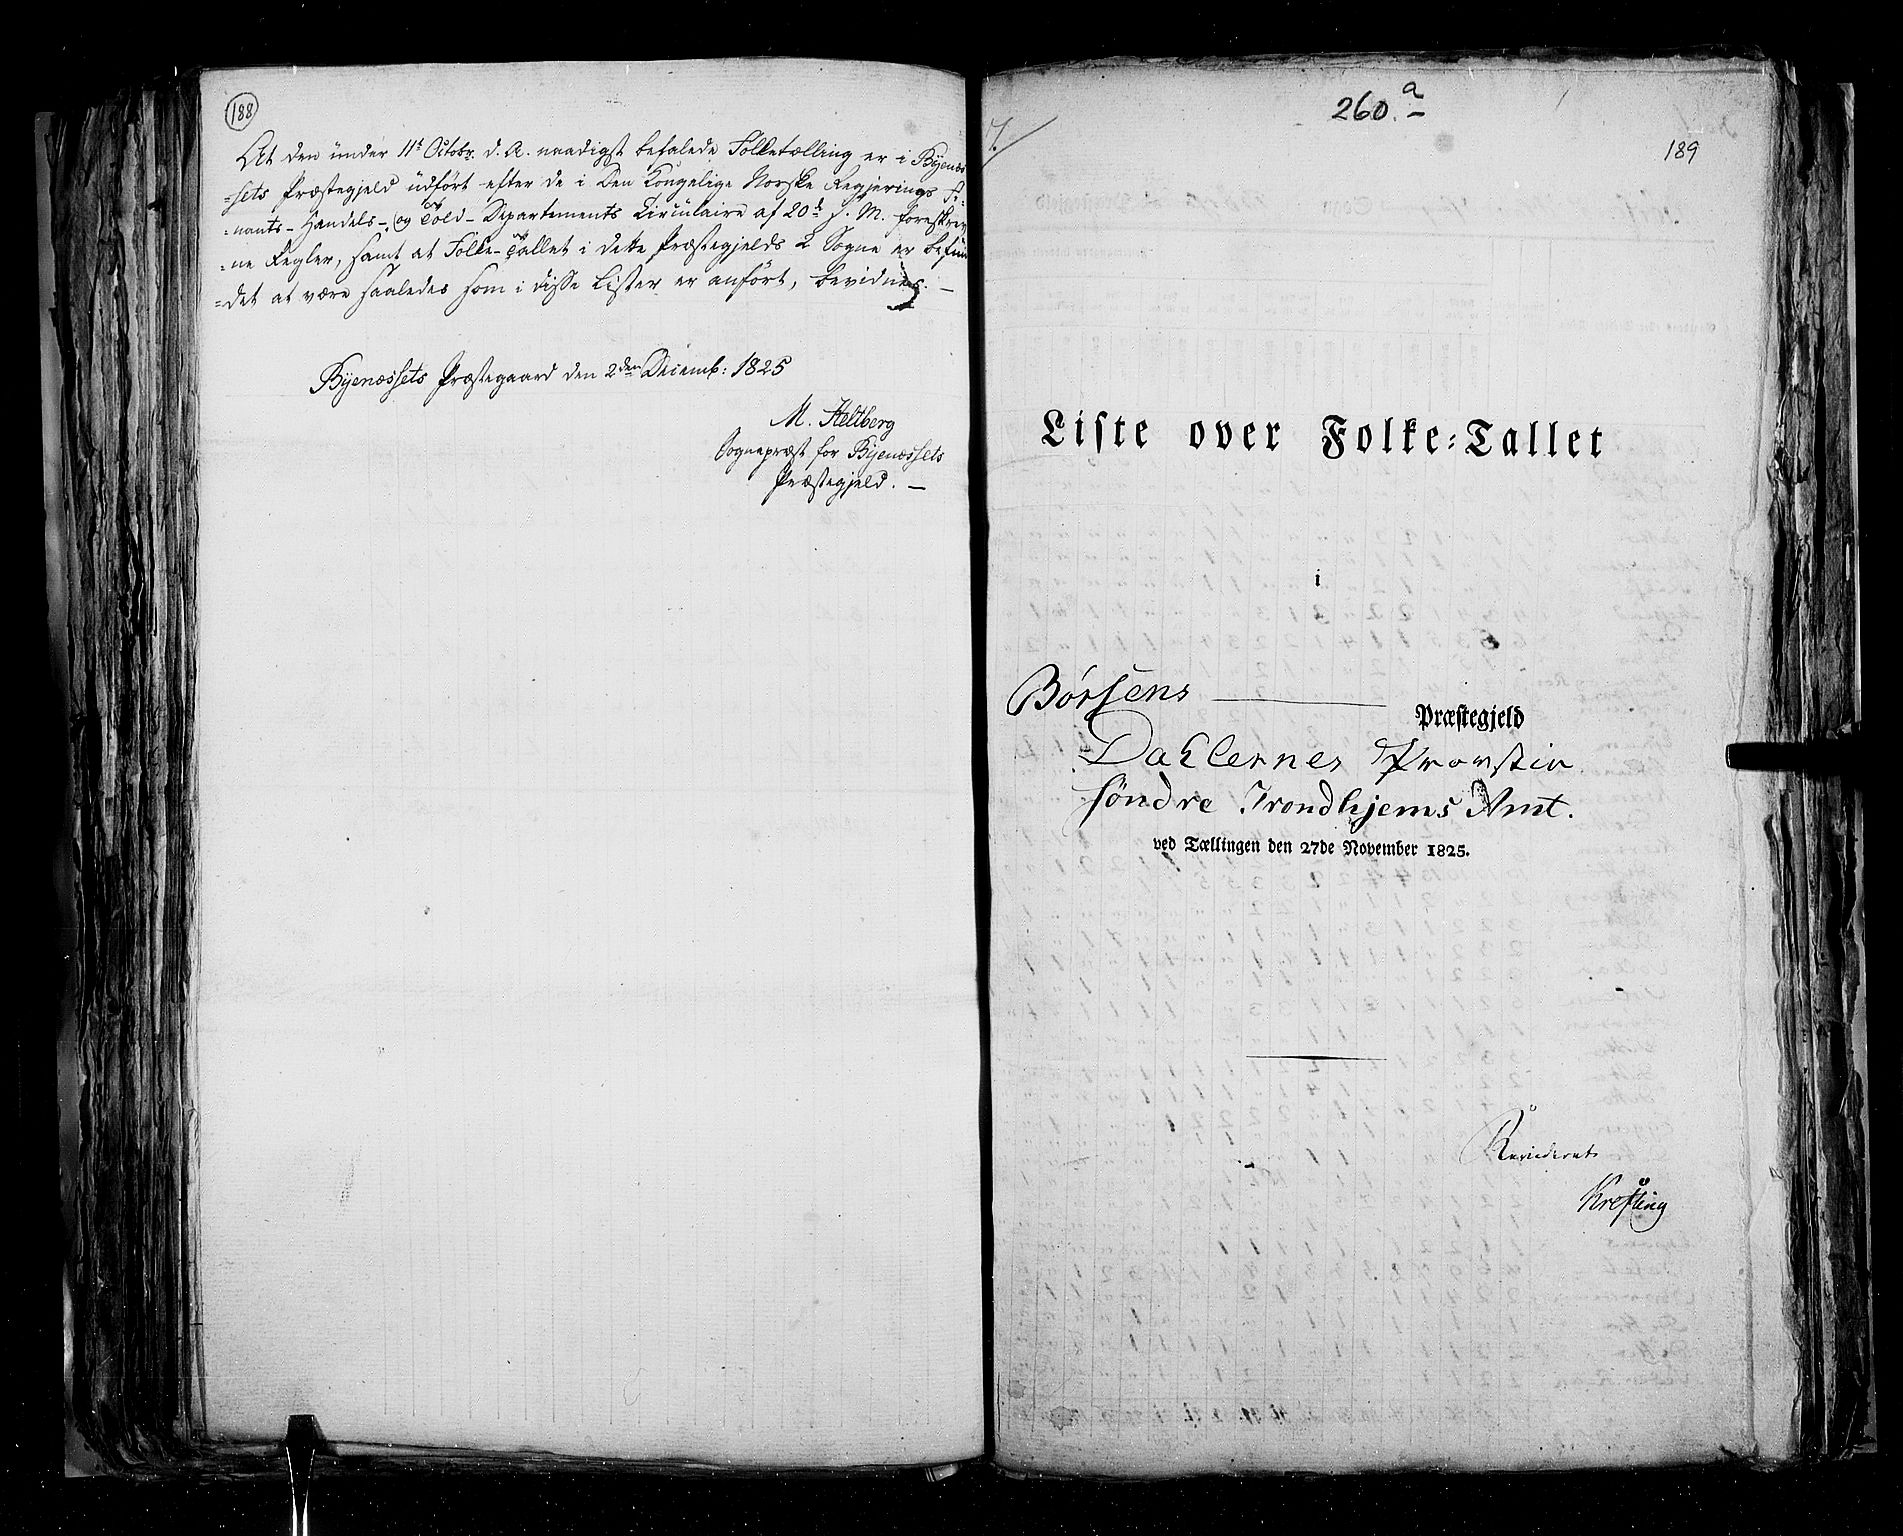 188
At den under 11te Octobr. d. A. naadigst befalede Folketælling er i Byenæs-
=sets Præstegjeld udført efter de i Den Kongelige Norske Regjerings Fi-
=nants- Handels-, og Told-Departements Circulaire af 20de f. M. foreskrev
=ne Regler, samt at Folke-Tallet i dette Præstegjelds 2 Sogne er befun
=det at være saaledes som i disse Lister er anført, bevidnes. —
Byenæssets Præstegaard den 2den Decemb: 1825
M. Heltberg
Sognepræst for Byenæssets
Præstegjeld. —
260.a
189
7.
Liste over Folke=Tallet
i
Børsens
Præstegjeld
Dahlernes Provstie
søndre Trondhjems Amt.
ved Tællingen den 27de November 1825.
Revideret
Krefting